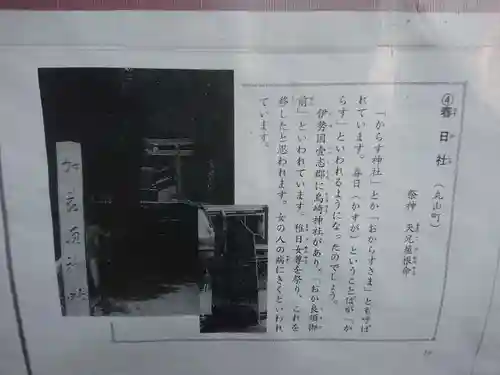 ④春日社(丸山町)
祭神 天児屋根命
「からす神社」とか「おからすさま」とも呼ば
れています。春日(かすが)ということばが「か
らす」といわれるようになったのでしょう。
伊勢国壹志郡に烏崎神社があり、「おか良須御
前」といわれています。稚日女尊を祭り、これを
移したと思われます。女の人の病にきくといわれ
ています。